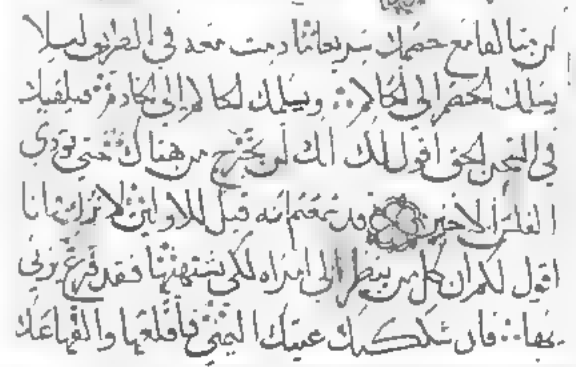 كن متفاهما مع خصمك سريعا ما دمت معه في الطريق ليلا
يسلمك الخصم الى الحاكم ويسلمك الحاكم الى الخادم فيلقيك
في السجن الحق اقول لك انك لن تخرج من هناك حتى تودي
الفلس الاخير قد سمعتم انه قيل للاولين لا تزن انا
اقول لكم ان كل من ينظر الى امراه لكي يشتهيها فقد فرغ يزني
بها فان شككتك عينك اليمنى فاقلعها والقها عنك